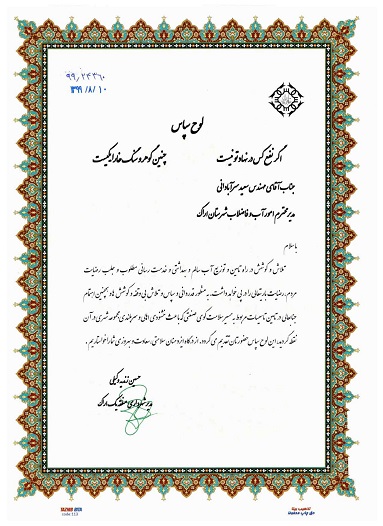 ۹۹/۲۴۳۶۰
۱۳۹۹/۸/۱۰
لوح سپاس
اگر نفع کس در نهاد تو نیست چنین گوهر و سنگ خارا یکیست
جناب آقای مهندس سعید سرآبادانی
مدیر محترم امور آب و فاضلاب شهرستان اراک
با سلام
تلاش و کوشش در راه تامین و توزیع آب سالم و بهداشتی و خدمت رسانی مطلوب و جلب رضایت
مردم، رضایت باریتعالی را در پی خواهد داشت. به منظور قدردانی و سپاس و تلاش بی وقفه و کوشش ها و همچنین اهتمام
جنابعالی در تامین تاسیسات مربوط به مسیر سلامت کوی صنعتی که باعث خشنودی اهالی و سرزندگی مجموعه شهری و آن
نقطه گردید، این لوح سپاس حضورتان تقدیم می گردد. از درگاه ایزد منان سلامتی، سعادت و بهروزی شما را خواستاریم.
حسین
مدیر شهرداری منطقه یک اراک
TAZHIB AFIX
code:113
تذهیب برنا
حق چاپ محفوظ